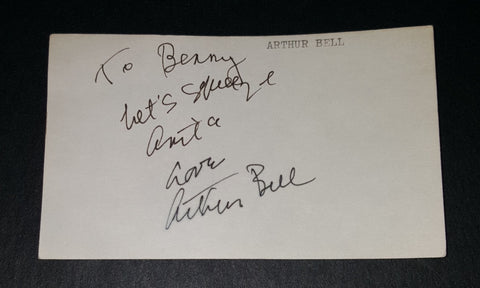 ARTHUR BELL
To Benny
Let's squeeze
Anita
Love
Arthur Bell